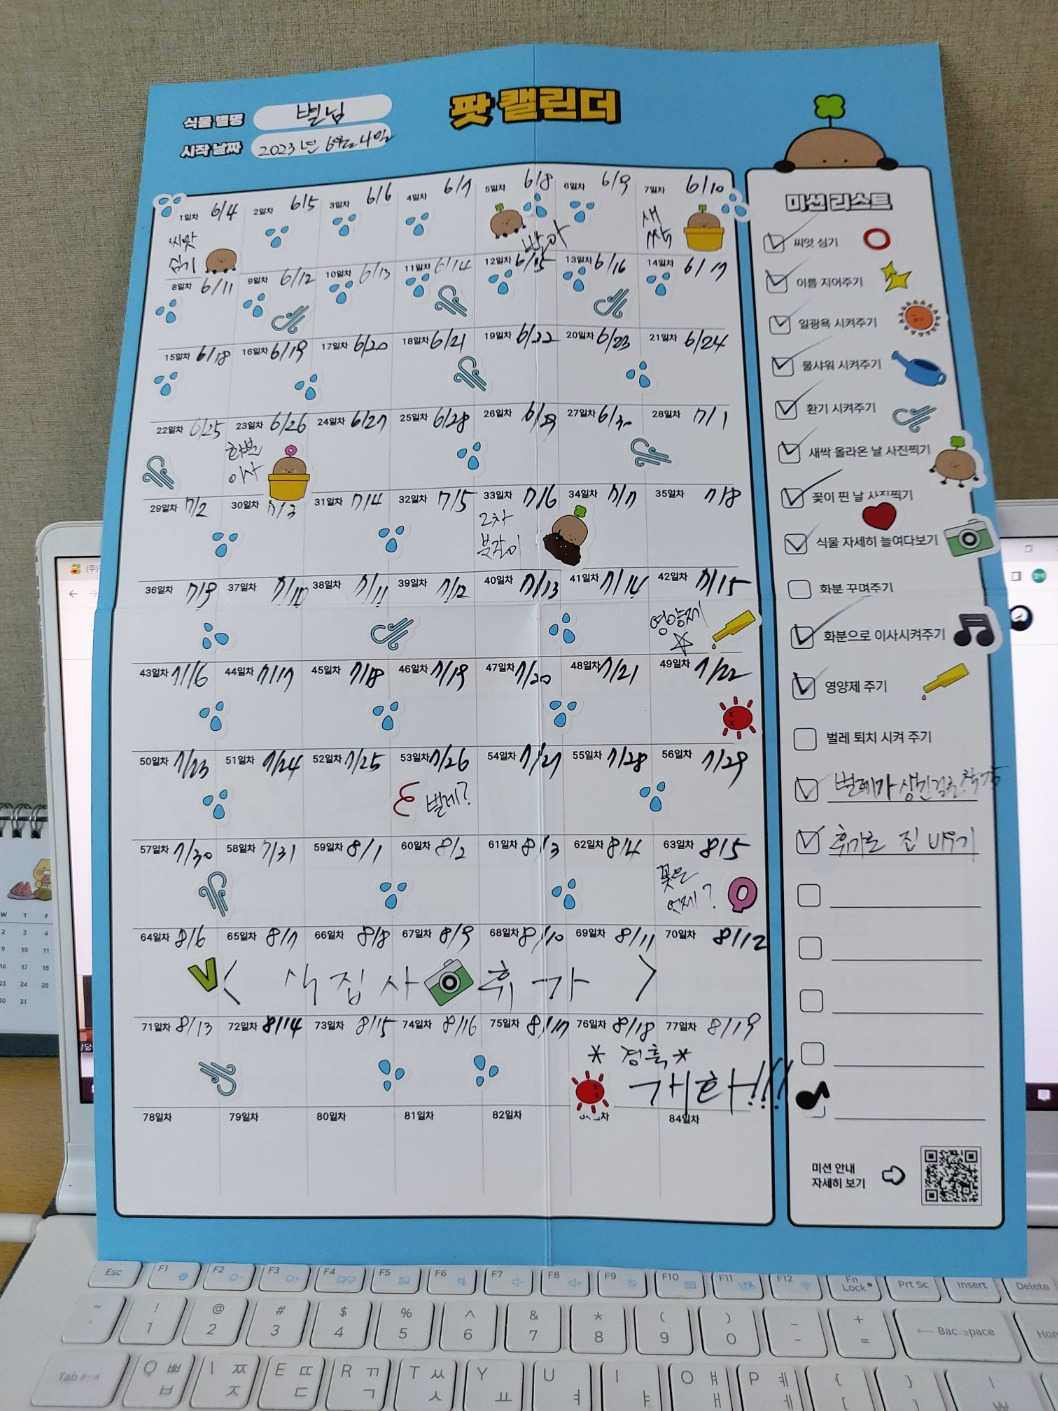 팟 캘린더
식물 별명 별님
시작 날짜 2023년 6월 4일
1일차 6/4 2일차 6/5 3일차 6/6 4일차 6/7 5일차 6/8 6일차 6/9 7일차 6/10
씨앗 심기 발아 새싹
8일차 6/11 9일차 6/12 10일차 6/13 11일차 6/14 12일차 6/15 13일차 6/16 14일차 6/17
15일차 6/18 16일차 6/19 17일차 6/20 18일차 6/21 19일차 6/22 20일차 6/23 21일차 6/24
22일차 6/25 23일차 6/26 24일차 6/27 25일차 6/28 26일차 6/29 27일차 6/30 28일차 7/1
화분 이사
29일차 7/2 30일차 7/3 31일차 7/4 32일차 7/5 33일차 7/6 34일차 7/7 35일차 7/8
2차 분갈이
36일차 7/9 37일차 7/10 38일차 7/11 39일차 7/12 40일차 7/13 41일차 7/14 42일차 7/15
영양제
43일차 7/16 44일차 7/17 45일차 7/18 46일차 7/19 47일차 7/20 48일차 7/21 49일차 7/22
50일차 7/23 51일차 7/24 52일차 7/25 53일차 7/26 54일차 7/27 55일차 7/28 56일차 7/29
벌레?
57일차 7/30 58일차 7/31 59일차 8/1 60일차 8/2 61일차 8/3 62일차 8/4 63일차 8/5
꽃은 언제?
64일차 8/6 65일차 8/7 66일차 8/8 67일차 8/9 68일차 8/10 69일차 8/11 70일차 8/12
< 식집사 휴가 >
71일차 8/13 72일차 8/14 73일차 8/15 74일차 8/16 75일차 8/17 76일차 8/18 77일차 8/19
* 경축 *
개화!!!
78일차 79일차 80일차 81일차 82일차 84일차
미션 리스트
씨앗 심기
이름 지어주기
일광욕 시켜주기
물샤워 시켜주기
환기 시켜주기
새싹 올라온 날 사진찍기
꽃이 핀 날 사진찍기
식물 자세히 들여다보기
화분 꾸며주기
화분으로 이사시켜주기
영양제 주기
벌레 퇴치 시켜 주기
벌레가 생긴걸로
휴가로 집 비우기
미션 안내
자세히 보기
Esc F1 F2 F3 F4 F5 F6 F7 F8 F9 F10 F11 F12 Fn Lock Prt Sc Insert Delete
~ ! 1 @ 2 # 3 $ 4 % 5 ^ 6 & 7 * 8 ( 9 ) 0 - + =
Tab Q ㅃ ㅂ ㅉ ㅈ E ㄸ ㄷ R ㄲ ㄱ T ㅆ ㅅ Y ㅛ U ㅕ I ㅑ O ㅒ ㅐ P ㅖ ㅔ { [ } ]